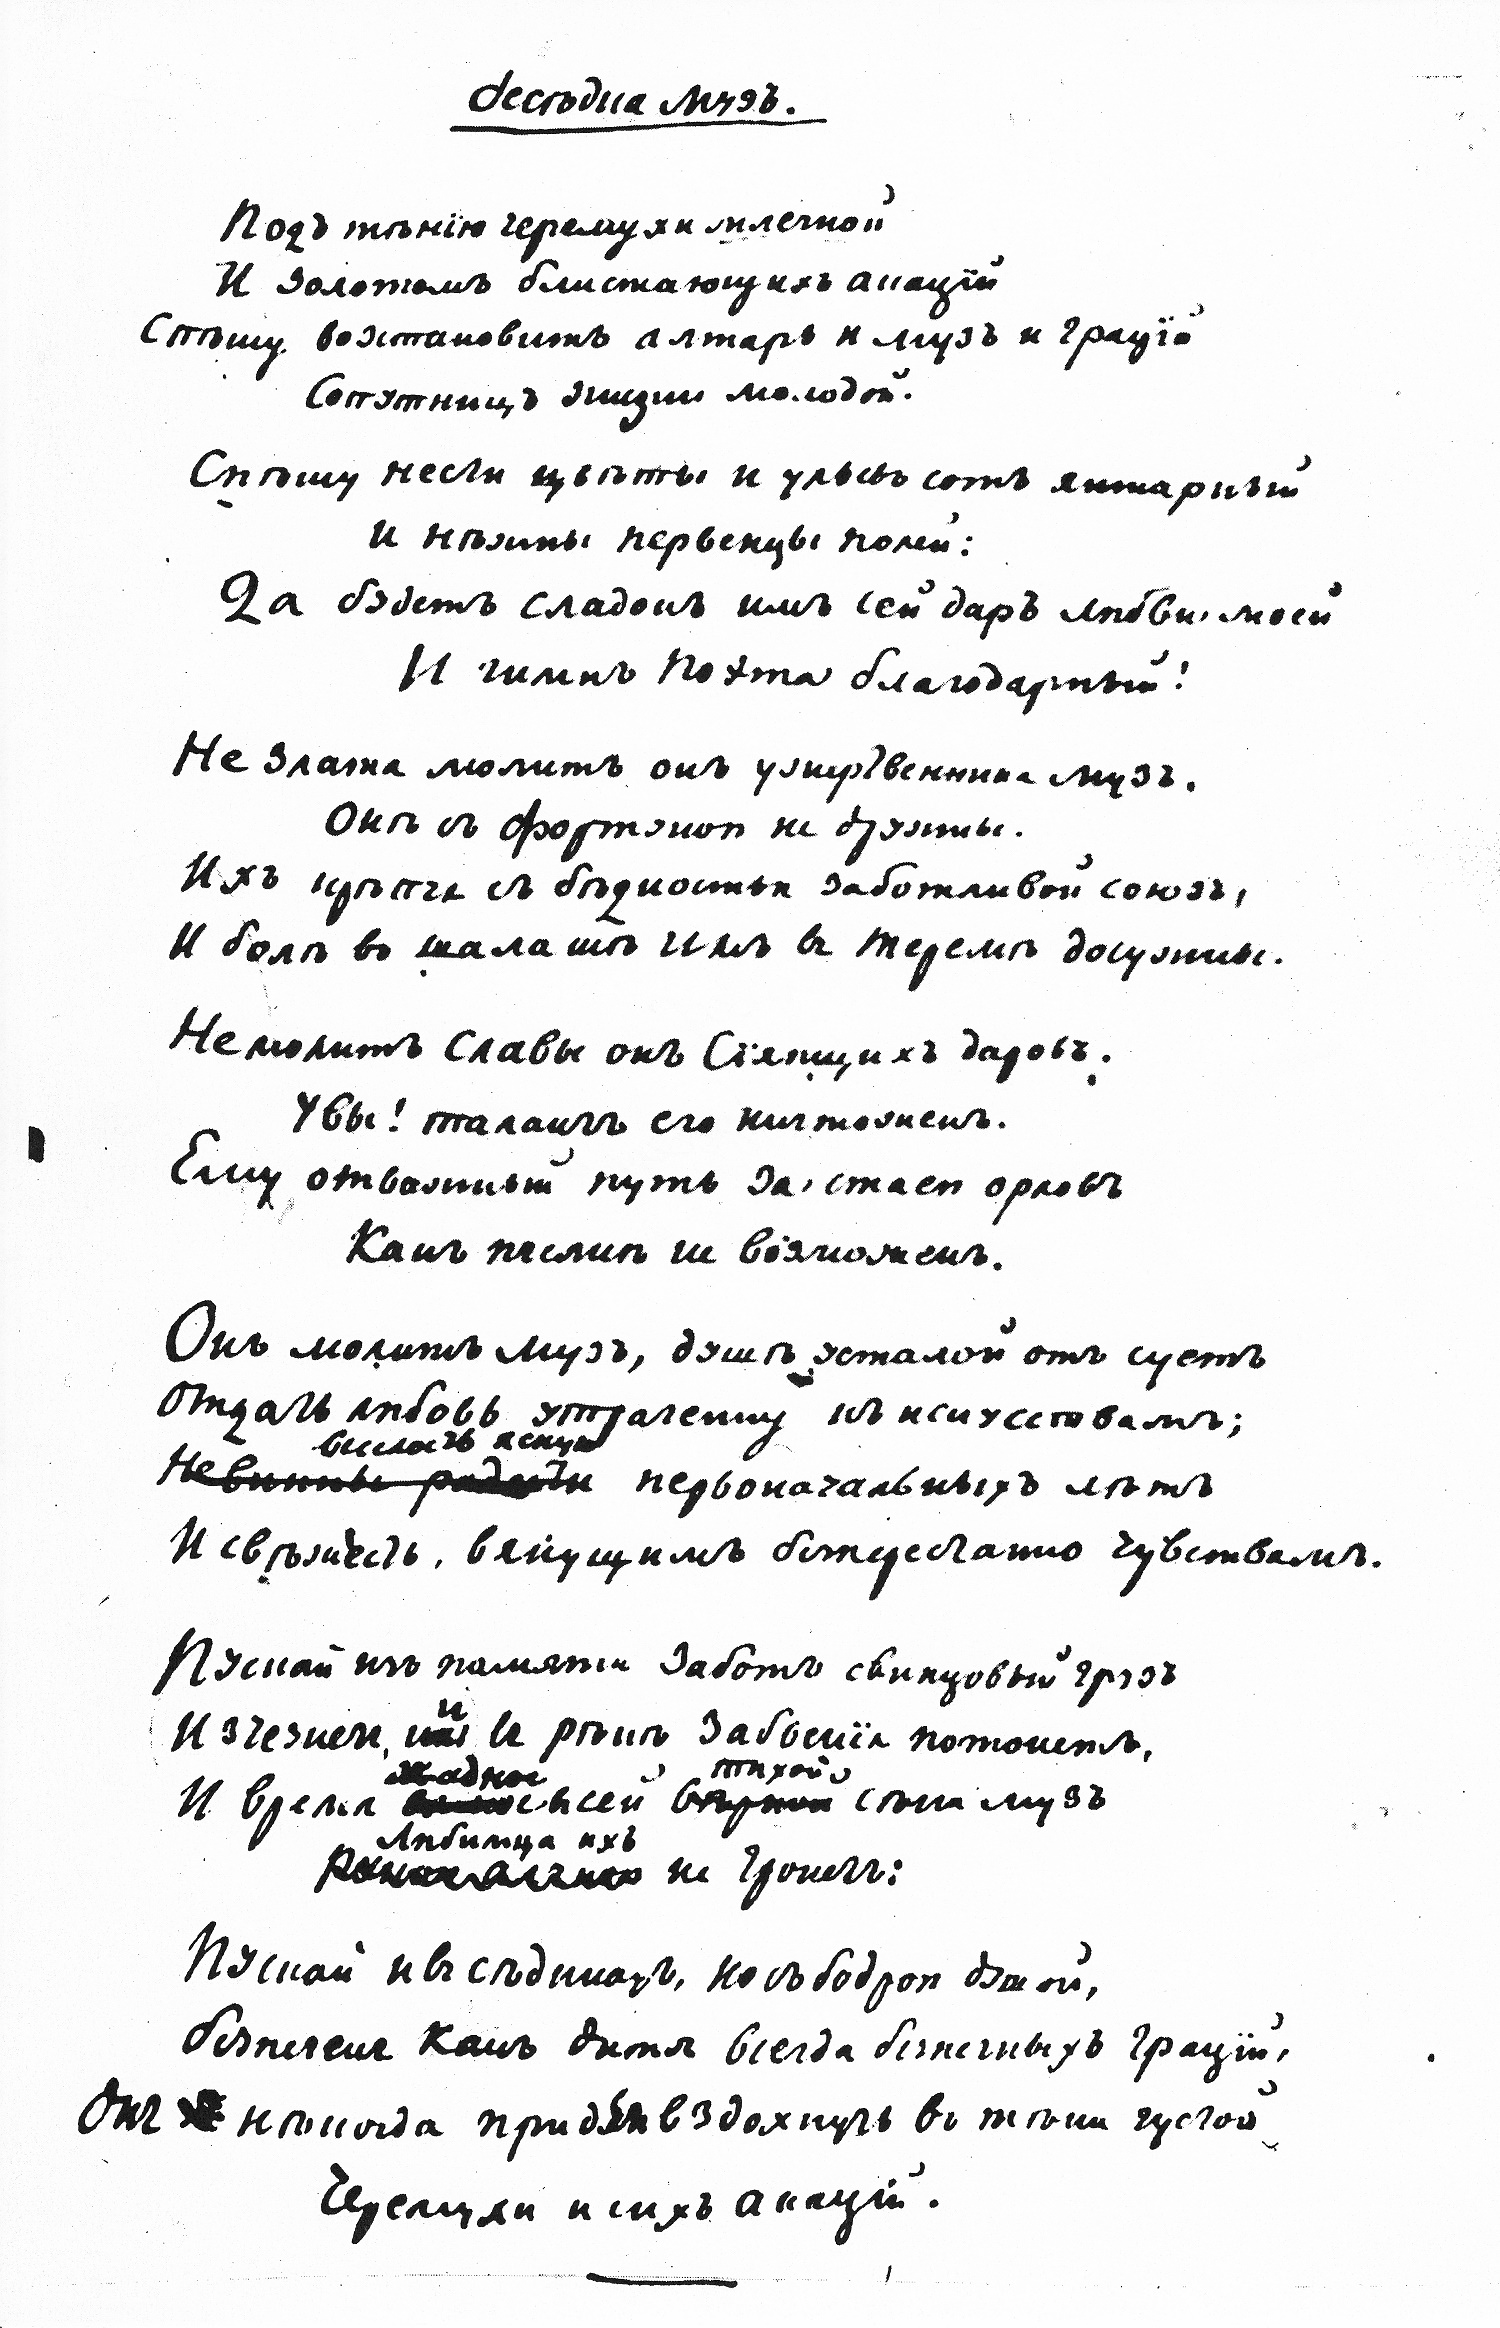 Бесѣдка Музъ.
Подъ тѣнїю черемухи млечной
И золотомъ блистающихъ акацїй
Спѣшу возстановить алтарь и музъ и грацїй
Сопутницъ жизни молодой.
Спѣшу нести цвѣты и ульевъ сотъ янтарный
И нѣжны первенцы полей:
Да будетъ сладокъ имъ сей даръ любви моей
И гимнъ Поэта благодарный!
Не злата молитъ онъ у жертвенника музъ.
Онѣ съ фортуною не дружны.
Ихъ крѣпче съ бѣдностью заботливой союзъ,
И болѣ въ шалашѣ чемъ въ теремѣ досужны.
Не молитъ Славы онъ Сїяющихъ даровъ.
Увы! талантъ его ничтоженъ.
Ему отважный путь за стаею орловъ
Какъ пчелкѣ не возможенъ.
Онъ молитъ музъ, душѣ усталой отъ суетъ
Отдать любовь утрачену къ искусствамъ;
веселость ясную
Невинны радости первоначальныхъ лѣтъ
И свѣжесть, вянущимъ безперестанно чувствамъ.
Пускай изъ памяти заботъ свинцовый грузъ
и
Изчезнетъ, въ рѣкѣ забвенїя потонетъ,
жадное тихой
И время сей вѣрной сѣни музъ
Любимца ихъ
не тронетъ:
Пускай и въ сѣдинахъ, но съ бодрою душой,
Безпеченъ какъ дитя всегда безпечныхъ Грацїй,
Онъ нѣкогда придетъ вздохнуть въ тѣни густой
Черемухи и сихъ акацїй.